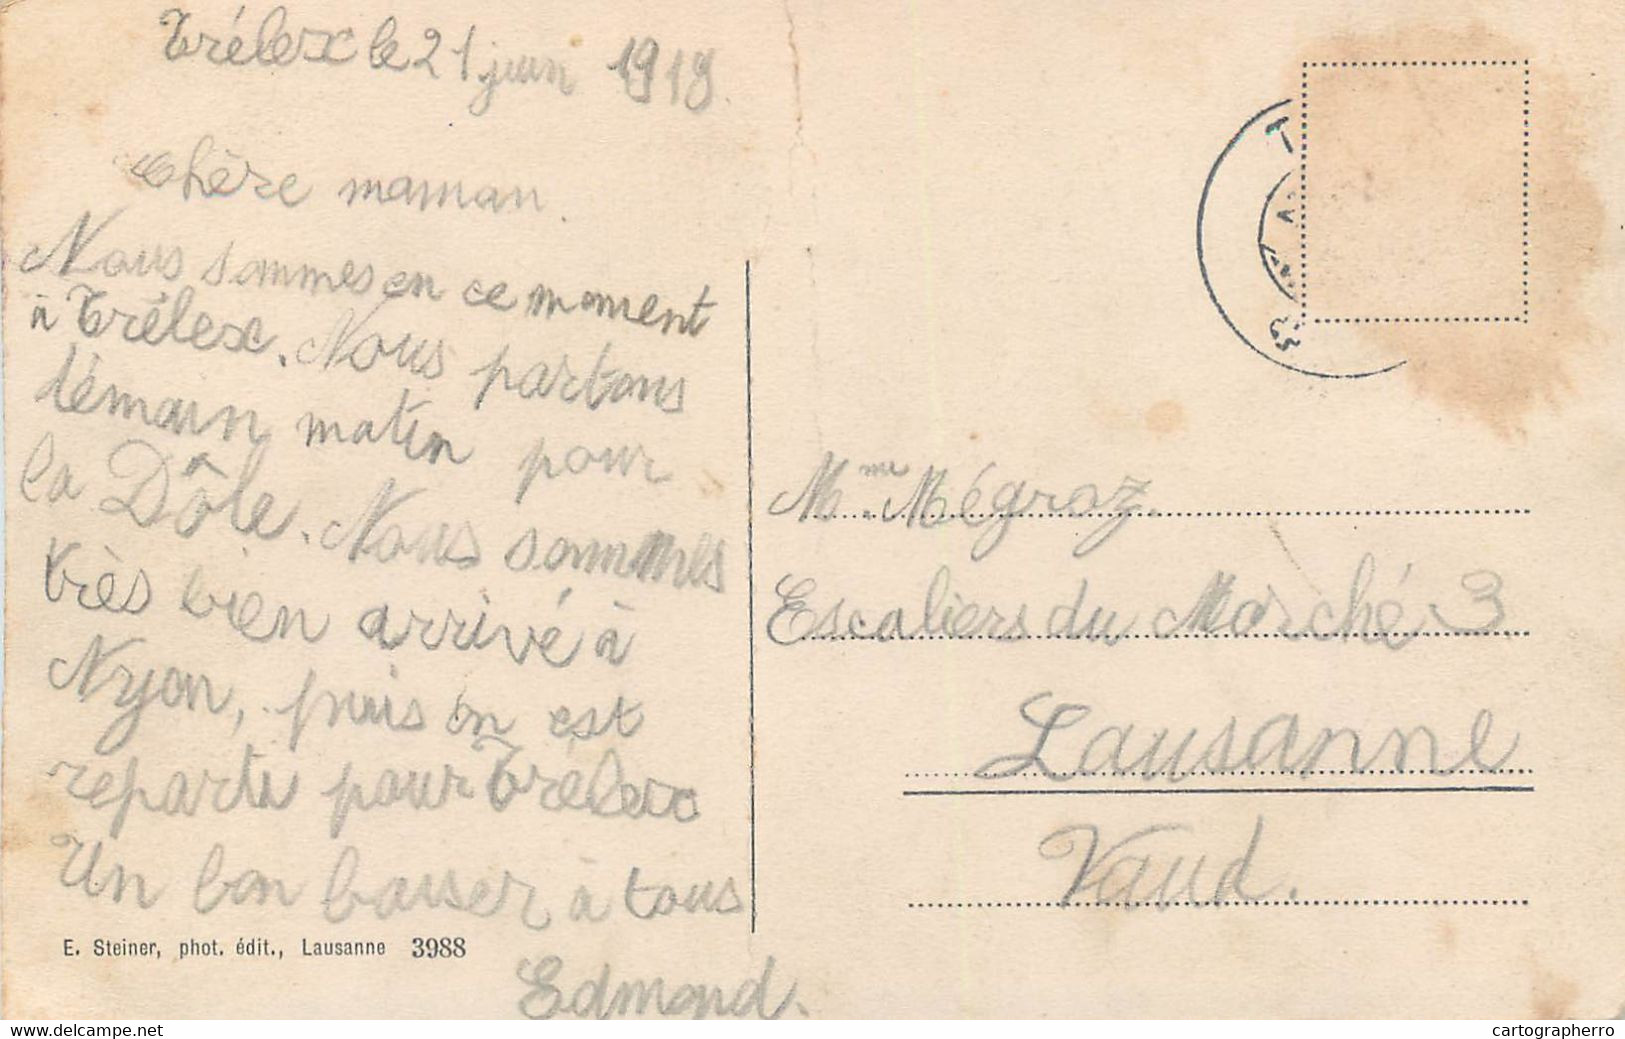 Trélex le 21 juin 1919.
Chère maman.
Nous sommes en ce moment
à Trélex. Nous partons
démain matin pour
la Dôle. Nous sommes
très bien arrivé à
Nyon, puis on est
reparti pour Trélex
Un bon baiser à tous
Edmond.
E. Steiner, phot. édit., Lausanne 3988
Mme Mégroz.
Escaliers du Marché 3
Lausanne
Vaud.
www.delcampe.net
cartographerro